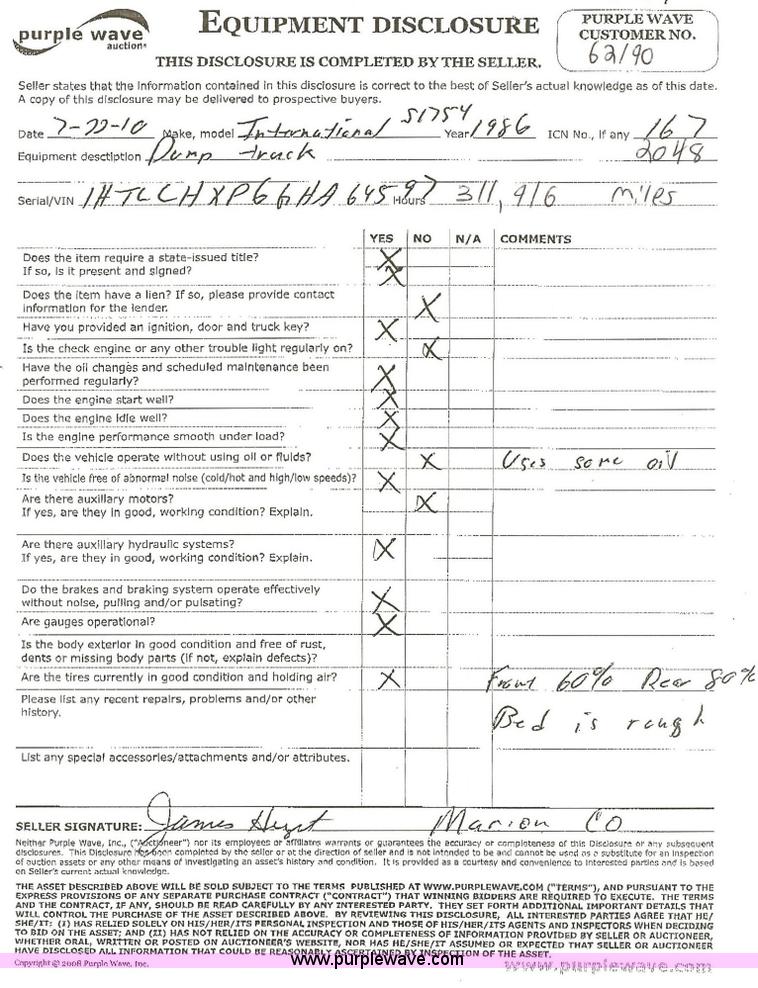 purple wave
auction
EQUIPMENT DISCLOSURE
THIS DISCLOSURE IS COMPLETED BY THE SELLER.
PURPLE WAVE
CUSTOMER NO.
62190
Seller states that the information contained in this disclosure is correct to the best of Seller's actual knowledge as of this date.
A copy of this disclosure may be delivered to prospective buyers.
Date 7-22-10 Make, model International S1754 Year 1986 ICN No., if any 167
Equipment description Dump truck 2048
Serial/VIN Hours 311,916 miles
YES NO N/A COMMENTS
Does the item require a state-issued title? X
If so, is it present and signed? X
Does the item have a lien? If so, please provide contact
information for the lender. X
Have you provided an ignition, door and truck key? X
Is the check engine or any other trouble light regularly on? X
Have the oil changes and scheduled maintenance been
performed regularly? X
Does the engine start well? X
Does the engine idle well? X
Is the engine performance smooth under load? X
Does the vehicle operate without using oil or fluids? X Uses some oil
Is the vehicle free of abnormal noise (cold/hot and high/low speeds)? X
Are there auxiliary motors? X
If yes, are they in good, working condition? Explain.
Are there auxiliary hydraulic systems? X
If yes, are they in good, working condition? Explain.
Do the brakes and braking system operate effectively
without noise, pulling and/or pulsating? X
Are gauges operational? X
Is the body exterior in good condition and free of rust,
dents or missing body parts (if not, explain defects)?
Are the tires currently in good condition and holding air? X Front 60% Rear 80%
Please list any recent repairs, problems and/or other
history. Bed is rough
List any special accessories/attachments and/or attributes.
SELLER SIGNATURE: James Marion CO
Neither Purple Wave, Inc., ("Auctioneer") nor its employees or affiliates warrants or guarantees the accuracy or completeness of this Disclosure or any subsequent
disclosures. This Disclosure has been completed by the seller or at the direction of seller and is not intended to be and cannot be used as a substitute for an inspection
of auction assets or any other means of investigating an asset's history and condition. It is provided as a courtesy and convenience to interested parties and is based
on Seller's current actual knowledge.
THE ASSET DESCRIBED ABOVE WILL BE SOLD SUBJECT TO THE TERMS PUBLISHED AT WWW.PURPLEWAVE.COM ("TERMS"), AND PURSUANT TO THE
EXPRESS PROVISIONS OF ANY SEPARATE PURCHASE CONTRACT ("CONTRACT") THAT WINNING BIDDERS ARE REQUIRED TO EXECUTE. THE TERMS
AND THE CONTRACT, IF ANY, SHOULD BE READ CAREFULLY BY ANY INTERESTED PARTY. THEY SET FORTH ADDITIONAL IMPORTANT DETAILS THAT
WILL CONTROL THE PURCHASE OF THE ASSET DESCRIBED ABOVE. BY REVIEWING THIS DISCLOSURE, ALL INTERESTED PARTIES AGREE THAT HE/
SHE/IT: (I) HAS RELIED SOLELY ON HIS/HER/ITS PERSONAL INSPECTION AND THOSE OF HIS/HER/ITS AGENTS AND INSPECTORS WHEN DECIDING
TO BID ON THE ASSET; AND (II) HAS NOT RELIED ON THE ACCURACY OR COMPLETENESS OF INFORMATION PROVIDED BY SELLER OR AUCTIONEER,
WHETHER ORAL, WRITTEN OR POSTED ON AUCTIONEER'S WEBSITE, NOR HAS HE/SHE/IT ASSUMED OR EXPECTED THAT SELLER OR AUCTIONEER
HAVE DISCLOSED ALL INFORMATION THAT COULD BE REASONABLY ASCERTAINED BY INSPECTION OF THE ASSET.
Copyright © 2008 Purple Wave, Inc. www.purplewave.com www.purplewave.com